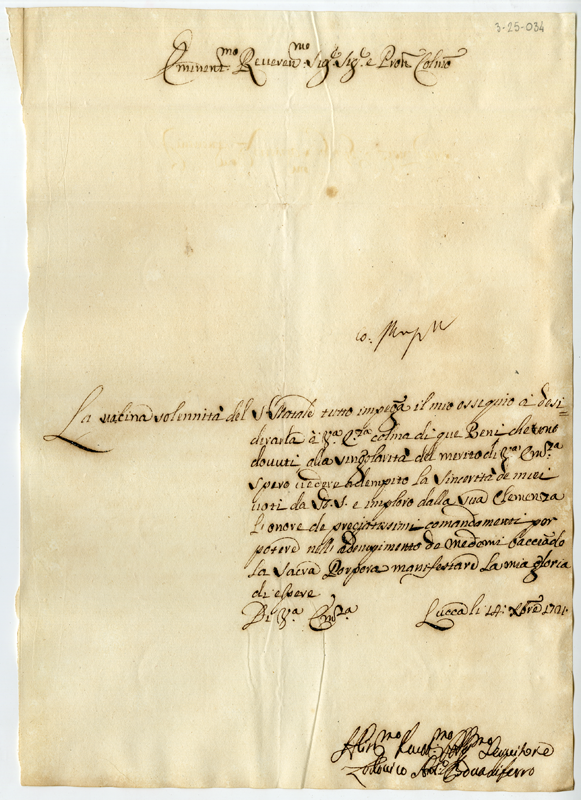 3-25-034
Eminent.mo Reveren.mo Sig.r Sig.r e Pron Colmo
La vicina solennità del S. Natale tutto impegna il mio ossequio à desi=
derarla à V.ra E.za colma di que Beni che sono
dovuti alla singolarità del merito di V.ra Em.za
spero vedere adempito la sincerità de miei
voti da S. D. M. e imploro dalla sua Clemenza
l'onore de pregiatissimi comandamenti per
potere nell'adempimento de medemi bacciando
la sacra Porpora manifestare la mia gloria
di essere
Di V.ra Em.za Lucca li 14: Xbre 1721
Humo Devot.mo Oblig.mo Servitore
Lodovico Ant.o Bonadiferro